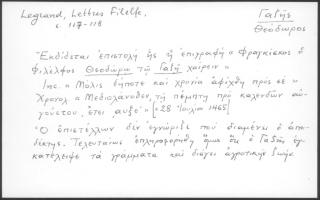 Legrand, Lettres Filelfe. Γαζῆς
σ. 117-118 Θεόδωρος
Ἐκδίδεται ἐπιστολὴ ἧς ἡ ἐπιγραφὴ "Φραγκίσκος ὁ
Φιλέλφος Θεοδώρῳ τῷ Γαζῇ χαίρειν"
Inc. "Μόλις δήποτε καὶ χρονία ἀφίχθη πρός σε"
Χρονολ "Μεδιολάνοθεν, τῇ πέμπτῃ πρὸ καλενδῶν αὐ-
γούστου, ἔτει αυξε'" [= 28 Ἰουλίου 1465]
Ὁ ἐπιστέλλων δὲν ἐγνώριζε ποῦ διαμένει ὁ ἀπο-
δέκτης. Τελευταίως ἐπληροφορήθη ὅμως ὅτι ὁ Γαζῆς ἐγ-
κατέλειψε τὰ γράμματα καὶ διάγει ἀγροτικὴν ζωήν